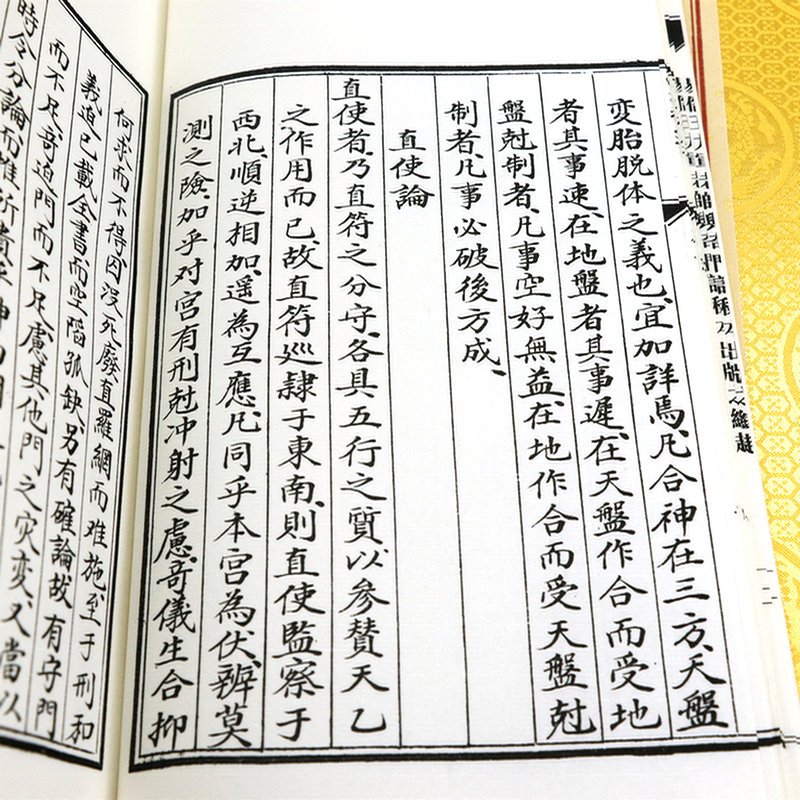 变胎脱体之义也、宜加詳焉、凡合神在三方、天盤
者其事速、在地盤者其事遲、在天盤作合而受地
盤尅制者、凡事空好無益、在地作合而受天盤尅
制者、凡事必破後方成、
直使論
直使者、乃直符之分守、各具五行之質、以參賛天乙
之作用而已、故直符廵隷于東南、則直使監察于
西北、順逆相加、遥為互應、凡同乎本宫為伏、辨莫
測之險、加乎对宫有刑尅冲射之慮、奇儀生合抑
何求而不得、因没死廢直羅網而难施、至于刑和
義迫、已載全書、而空陷孤缺、另有確論、故有守門
而不足、奇迫門而不足慮、其他門之灾变、又當以
時令分論、而难所